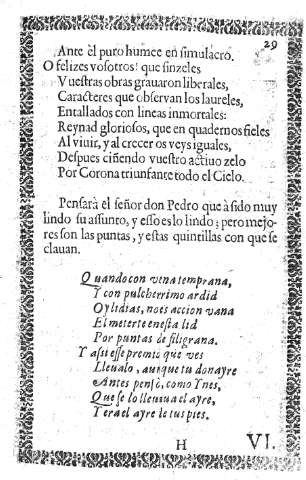 29
Ante èl puro humee en simulacro.
O felizes vosotros! que sinzeles
Vuestras obras grauaron liberales,
Caracteres que observan los laureles,
Entallados con lineas inmortales:
Reynad gloriosos, que en quadernos fieles
Al viuir, y al crecer os veys iguales,
Despues ciñendo vuestro actiuo zelo
Por Corona triunfante todo el Cielo.
Pensarà el señor don Pedro que à sido muy
lindo su assunto, y esso es lo lindo; pero mejo-
res son las puntas, y estas quintillas con que se
clauan.
Quando con vena temprana,
Y con pulcherrimo ardid
Oy lidias, no es accion vana
El meterte en esta lid
Por puntas de filigrana.
Y assi esse premio que ves
Lleualo, aunque tu donayre
Antes pensò, como Ynes,
Que se lo lleuaua el ayre,
Y era el ayre de tus pies.
H VI.